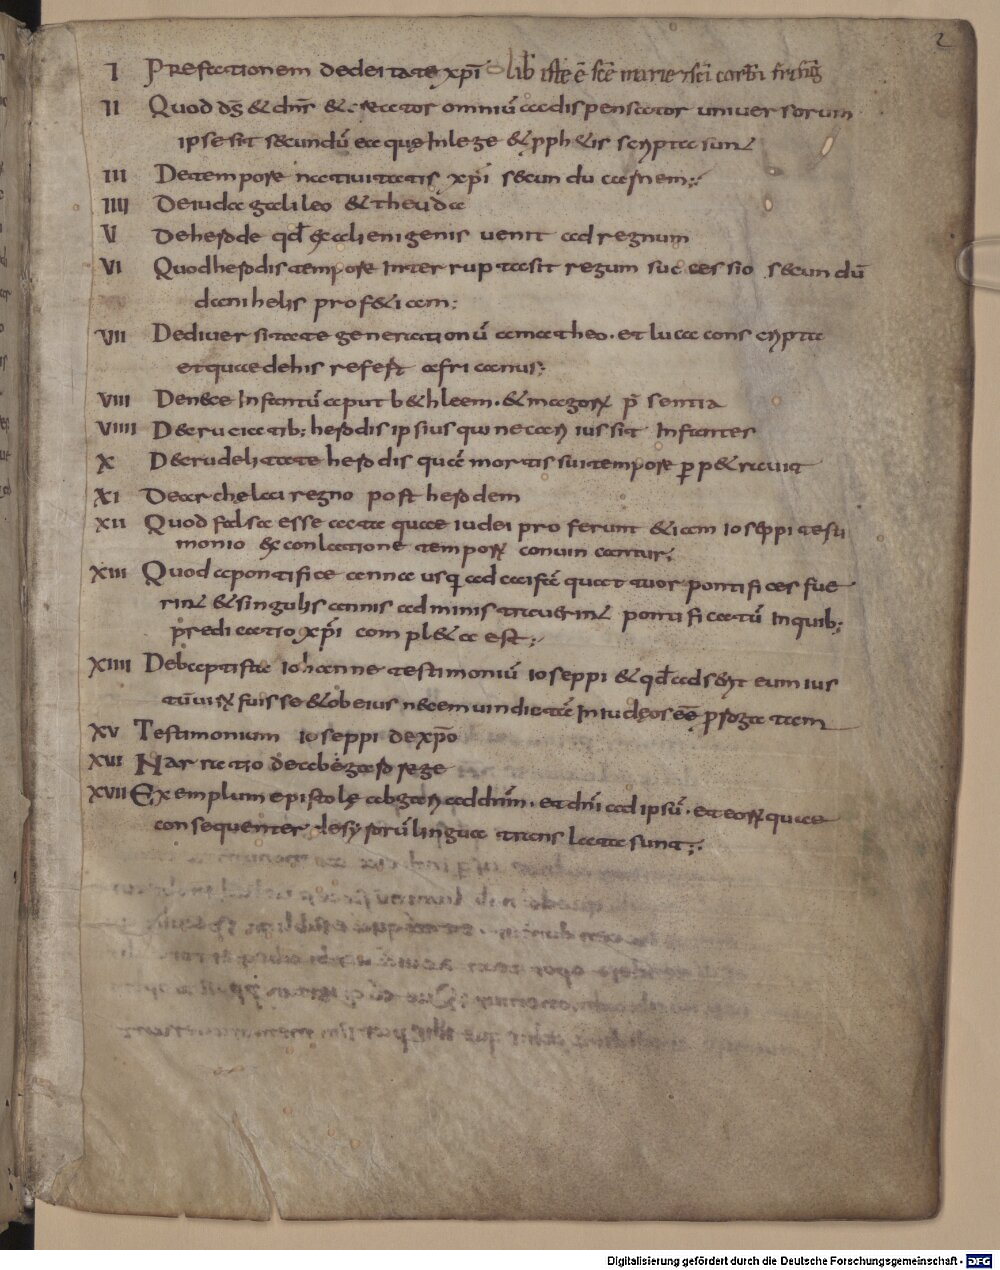 2
I Prefationem dedeitate xp̄i lib̄ iste ē sc̄e marie & sc̄i corb̄i fris̄ig̅
II Quod ds̄ & dn̄s & creator omniū ac dispensator universorum
ipse sit secundū ea quę in lege & pph&is scripta sunt
III De tempore nativitatis xp̄i secundu carnem;
IIII De iuda galileo & theuda
V De herode qd̄ ex alienigenis venit ad regnum
VI Quod herodis tempore interrupta sit regum successio secundū
danihelis prof&iam:
VII De diversitate generationū a matheo. et luca conscripta
et quae de his refert africanus;
VIII De nece infantū aput b&hleem. & magorꝝ p̄sentia
VIIII De cruciatib; herodis ipsius qui necari iussit infantes
X De crudelitate herodis quā mortis sui tempore pp&ravit
XI De archelai regno post herodem
XII Quod falsa esse acta quae iudei proferunt &iam ioseppi testi
monio & conlatione temporꝝ convincantur;
XIII Quod a pontifice anna usq; ad caifā quattuor pontifices fue
rint & singulis annis administraverint pontificatū in quib;
predicatio xp̄i compl&a est;
XIIII De baptista iohanne testimoniū ioseppi & qd̄ adserit eum ius
tū virū fuisse & ob eius necem vindictā in iudęos eē̄ prorogatam
XV Testimonium ioseppi de xp̄o
XVI Narratio de abegaro rege
XVII Exemplum epistolę abgari ad dn̄m. et dn̄i ad ipsū. et eorꝝ quae
consequenter de syrorū lingua translata sunt;
Digitalisierung gefördert durch die Deutsche Forschungsgemeinschaft - DFG